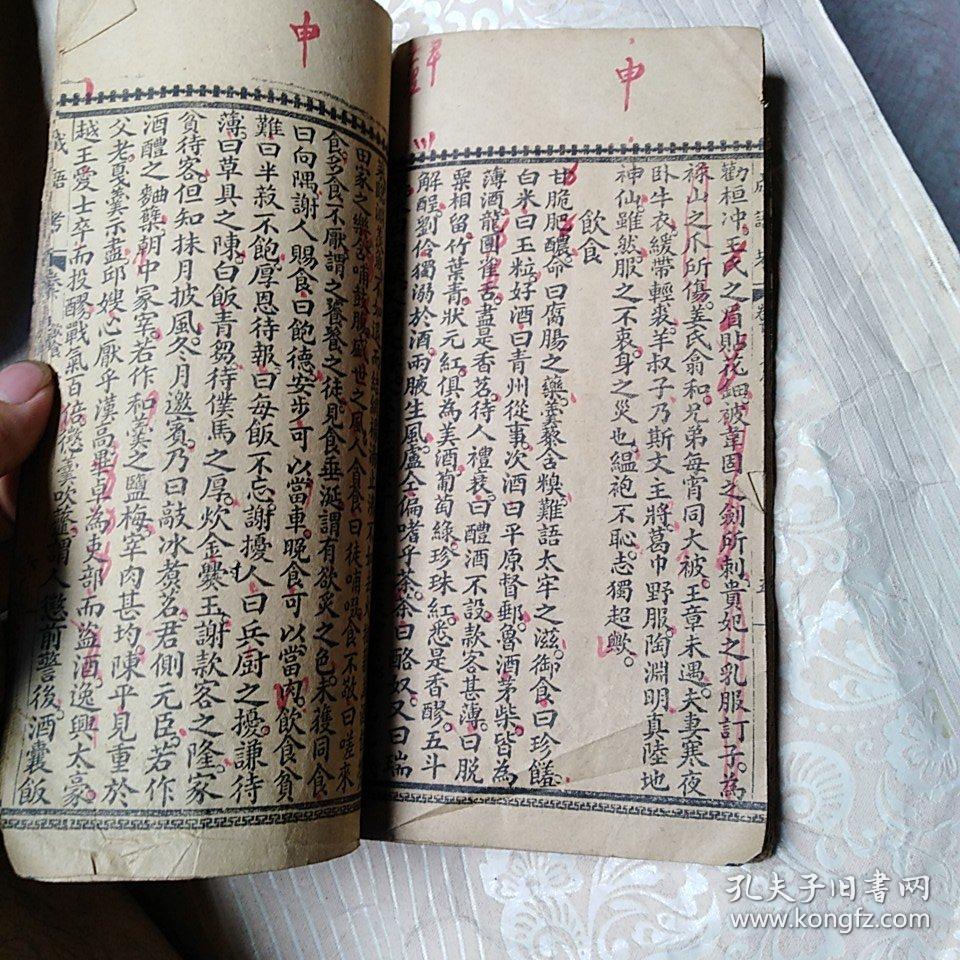 申
勸桓冲王氏之眉貼花鈿被韋固之劍所刺貴妃之乳服訂子為
祿山之爪所傷姜氏翁和兄弟每宵同大被王章未遇夫妻寒夜
卧牛衣緩帶輕裘羊叔子乃斯文主將葛巾野服陶淵明真陸地
神仙雖然服之不衷身之災也緼袍不恥志獨超歟
飲食
甘脆肥醲命曰腐腸之藥羹藜含糗難語太牢之滋御食曰珍饈
白米曰玉粒好酒曰青州從事次酒曰平原督郵魯酒茅柴皆為
薄酒龍團雀舌盡是香茗待人禮衰曰醴酒不設款客甚薄曰脫
粟相留竹葉青狀元紅俱為美酒葡萄綠珍珠紅悉是香醪五斗
解酲劉伶獨溺於酒兩腋生風盧仝偏嗜乎茶茶曰酪奴又曰瑞
申
田家之樂含哺鼓腹盛世之風人貪食曰徒哺啜食不敬曰嗟來
食多食不厭謂之饕餮之徒見食垂涎謂有欲炙之色未獲同食
曰向隅謝人賜食曰飽德安步可以當車晚食可以當肉飲食貧
難曰半菽不飽厚恩待報曰每飯不忘謝擾人曰兵廚之擾謙待
薄曰草具之陳白飯青芻待僕馬之厚炊金爨玉謝款客之隆家
貧待客但知抹月披風冬月邀賓乃曰敲冰煮茗君側元臣若作
酒醴之麯糵朝中冢宰若作和羹之鹽梅宰肉甚均陳平見重於
父老戛羹示盡邱嫂心厭乎漢高畢卓為吏部而盜酒逸興太豪
越王愛士卒而投醪戰氣百倍懲羹吹虀謂人懲前警後酒囊飯
成語考
孔夫子旧书网
www.kongfz.com